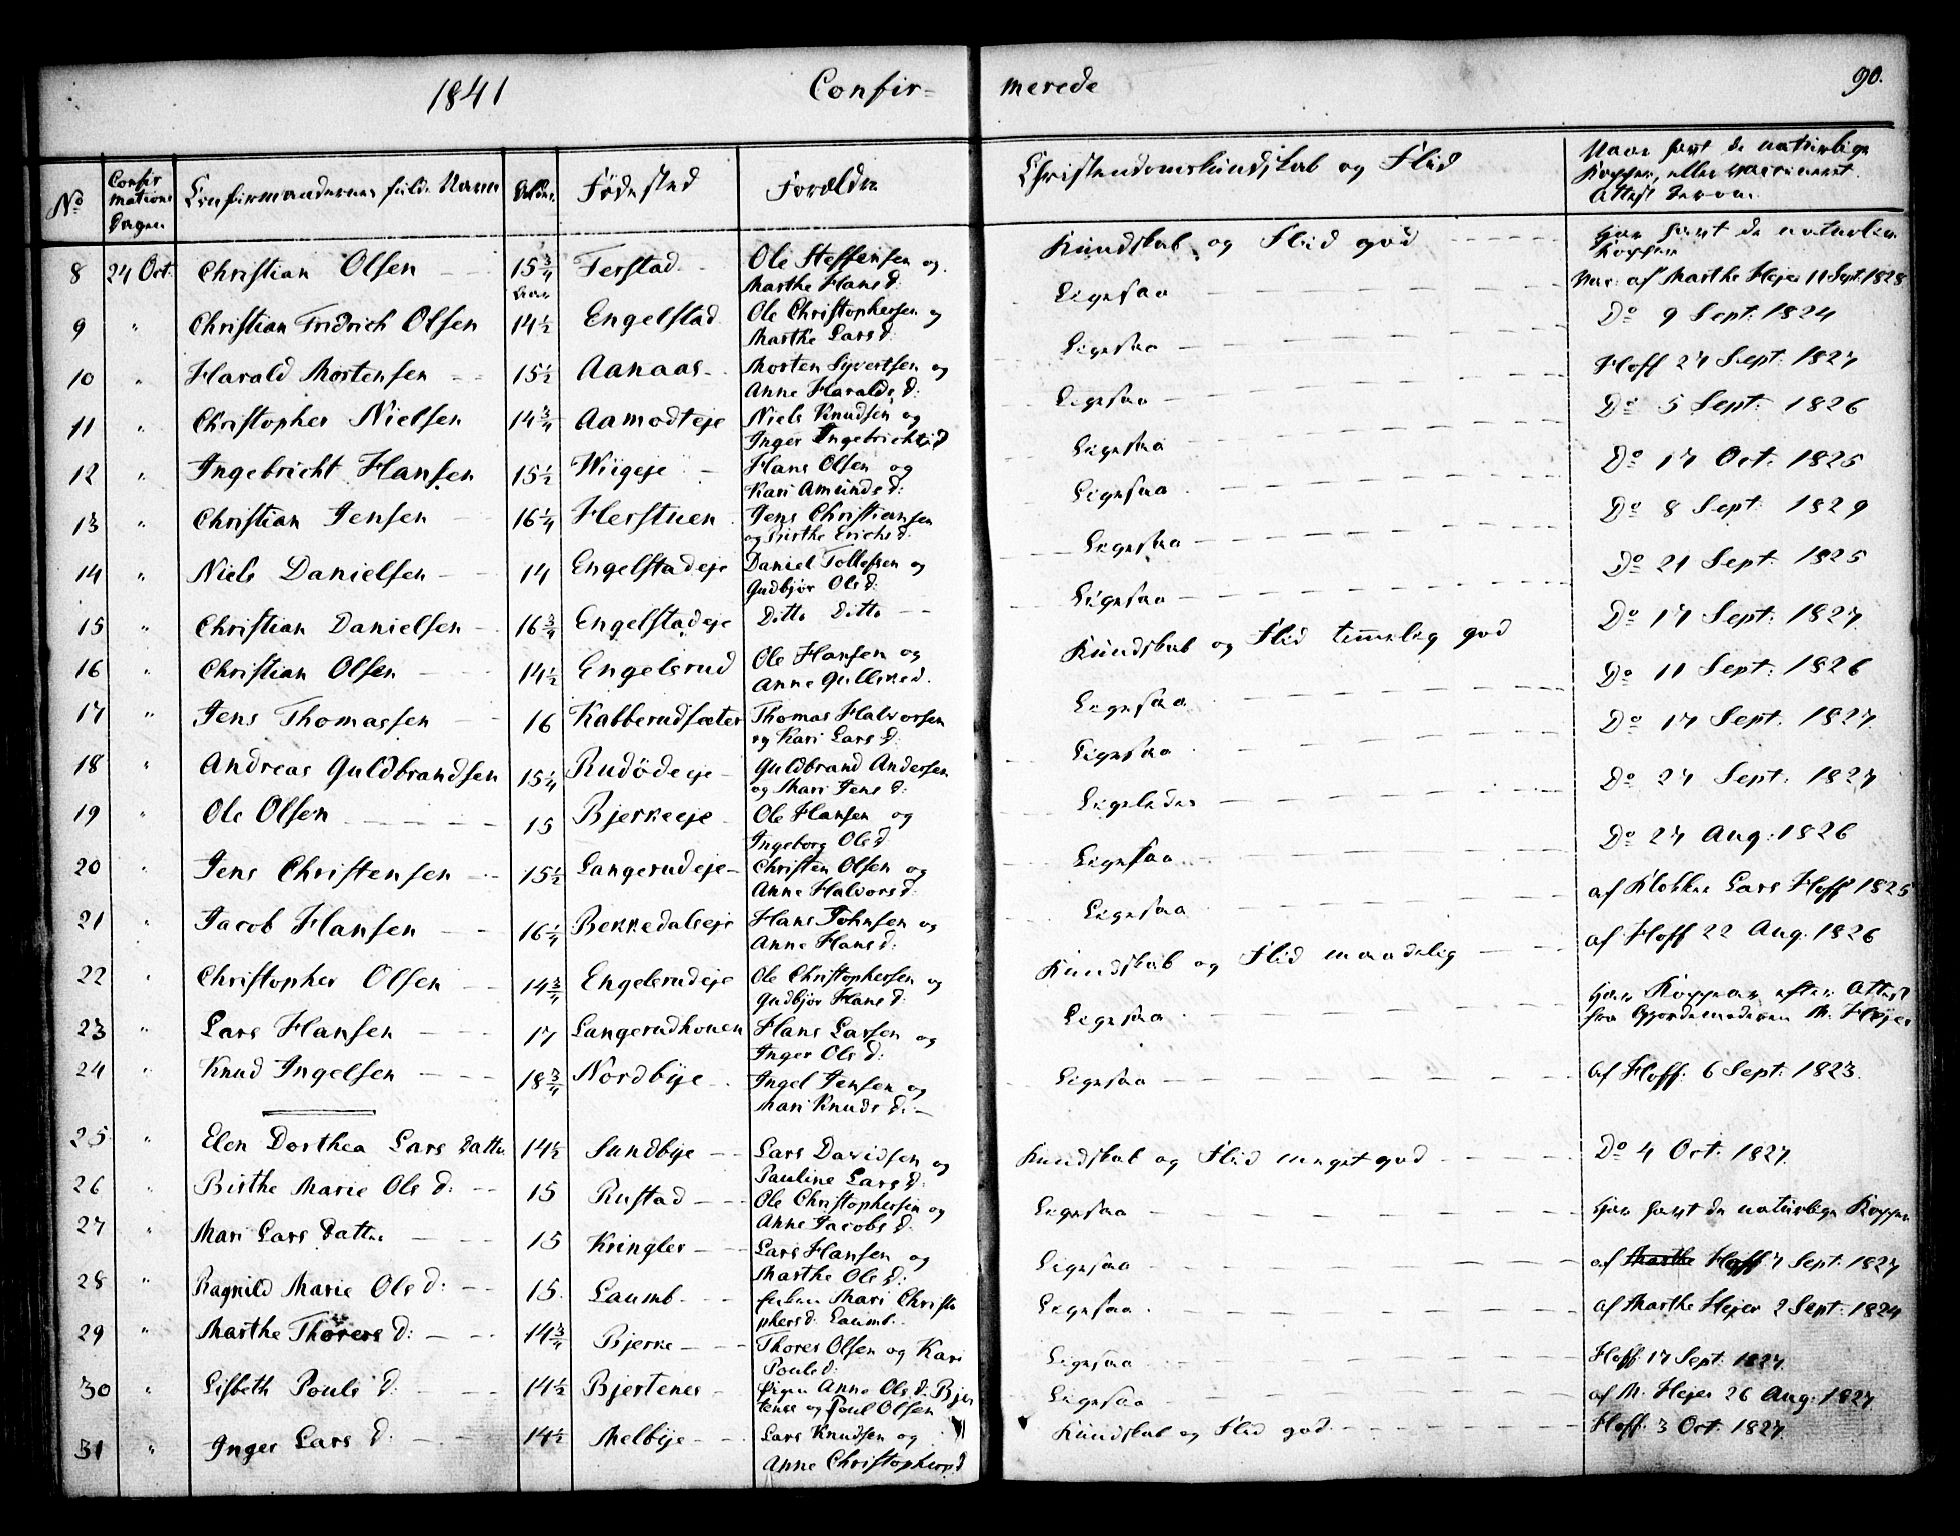 1841 Confir= merede 90.
No Confirmations Dagen Confirmandernes fulde Navn Alder Fødested Forældre Christendomskundskab og Flid Naar havt de naturlige
Kopper, eller vaccineret.
Attest derom.
8 24 Oct. Christian Olsen 15 3/4 Aar Ferstad Ole Steffensen og Kundskab og Flid god Har havt de naturlige Kopper
Marthe Hans d:
9 " Christian Fridrich Olsen 14 1/2 Engelstad Ole Christophersen og Ligesaa Vac: af Marthe Hejer 11 Sept. 1828
Marthe Lars d:
10 " Harald Mortensen 15 1/2 Aanaas Morten Syvertsen og Ligesaa Do 9 Sept: 1824
Anne Haralds d:
11 " Christopher Nielsen 14 3/4 Aamodteje Niels Knudsen og Ligesaa Hoff 27 Sept: 1827
Inger Ingebrichts d
12 " Ingebricht Hansen 15 1/2 Wiigeje Hans Olsen og Ligesaa Do 5 Sept: 1826
Kari Amunds d:
13 " Christian Jensen 16 1/4 Herstuen Jens Christiansen Ligesaa Do 17 Oct: 1825
og Birthe Erichs d.
14 " Niels Danielsen 14 Engelstadeje Daniel Tollefsen og Ligesaa Do 8 Sept: 1829
Gudbjør Ols d:
15 " Christian Danielsen 16 3/4 Engelstadeje Ditto Ditto Ligesaa Do 21 Sept: 1825
16 " Christian Olsen 14 1/2 Engelsrud Ole Hansen og Kundskab og Flid temmelig god Do 17 Sept: 1827
Anne Gulliks d.
17 " Jens Thomassen 16 Kabberudsæter Thomas Halvorsen Ligesaa Do 11 Sept: 1826
og Kari Lars d:
18 " Andreas Guldbrandsen 15 1/4 Rudödeje Guldbrand Andersen Ligesaa Do 17 Sept: 1827
og Mari Jens d:
19 " Ole Olsen 15 Bjerkeeje Ole Hansen og Ligeledes Do 27 Sept: 1827
Ingeborg Ols d
20 " Jens Christensen 15 1/2 Langerudeje Christen Olsen og Ligesaa Do 27 Aug: 1826
Anne Halvors d:
21 " Jacob Hansen 16 1/4 Bekkedalseje Hans Johnsen og Ligesaa af Klokker Lars Hoff 1825
Anne Hans d:
22 " Christopher Olsen 14 3/4 Engelsrudeje Ole Christophersen og Kundskab og Flid maadelig af Hoff 22 Aug. 1826
Gudbjør Hans d:
23 " Lars Hansen 17 Langerudhouen Hans Larsen og Ligesaa Har Koppear efter Attest
Inger Ols d: fra Gjordemoderen M. Hejer
24 " Knud Ingelsen 18 3/4 Nordbÿe Ingel Jensen og Ligesaa af Hoff: 6 Sept: 1823.
Mari Knuds d:
25 " Elen Dorthea Lars datter 14 1/2 Sundbÿe Lars Davidsen og Kundskab og Flid meget god Do 4 Oct. 1827.
Pauline Lars d:
26 " Birthe Marie Ols d: 15 Rustad Ole Christophersen og Ligesaa Har havt de naturlige Kopper
Anne Jacobs d.
27 " Mari Lars datter 15 Kringler Lars Hansen og Ligesaa af Marthe Hoff 7 Sept: 1827
Marthe Ols d:
28 " Ragnild Marie Ols d: 15. Laumb. Mari Christo Ligesaa af Marthe Hejer 2 Sept: 1824
phers d. Laumb.
29 " Marthe Thorers d: 14 3/4 Bjerke Thores Olsen og Kari Ligesaa Hoff: 17 Sept: 1827.
Pouls d:
30 " Lisbeth Pouls d: 14 1/2 Bjertenes Pigen Anne Ols d: Bjer Ligesaa af M. Hejer 26 Aug. 1827
tenes og Poul Olsen
31 " Inger Lars d: 14 1/2 Melbÿe Lars Knudsen og Kundskab og Flid god Hoff: 3 Oct: 1827.
Anne Christophers d